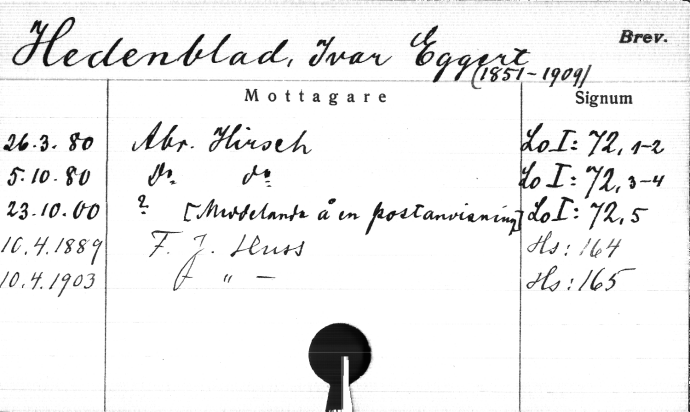 Hedenblad, Ivar Eggert Brev.
(1851-1909)
Mottagare Signum
26.3.80 Abr. Hirsch Lo I: 72, 1-2
5.10.80 Do Do Lo I: 72, 3-4
23.10.00 ? [Meddelande å en postanvisning] Lo I: 72, 5
10.4.1889 F. J. Huss Hs: 164
10.4.1903 " — Hs: 165